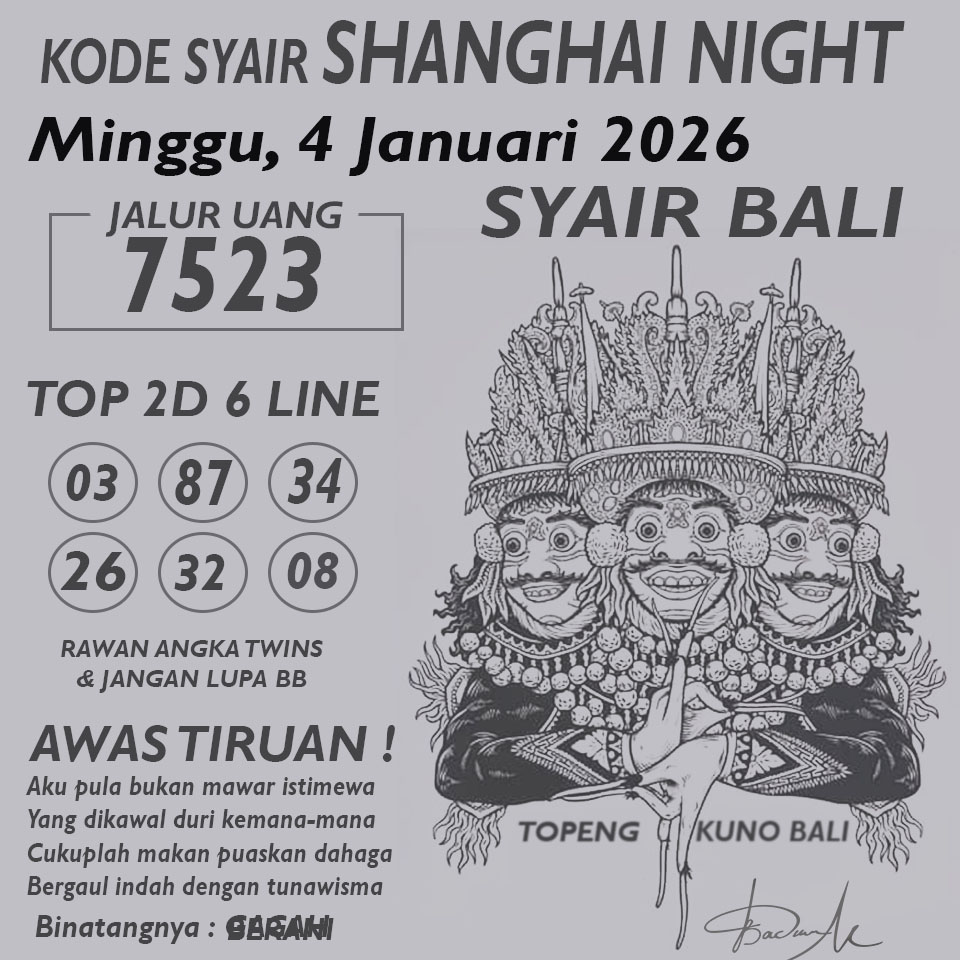 KODE SYAIR SHANGHAI NIGHT
Minggu, 4 Januari 2026
SYAIR BALI
JALUR UANG
7523
TOP 2D 6 LINE
03 87 34
26 32 08
RAWAN ANGKA TWINS
& JANGAN LUPA BB
AWAS TIRUAN !
Aku pula bukan mawar istimewa
Yang dikawal duri kemana-mana
Cukuplah makan puaskan dahaga
Bergaul indah dengan tunawisma
Binatangnya : BERANI
TOPENG KUNO BALI